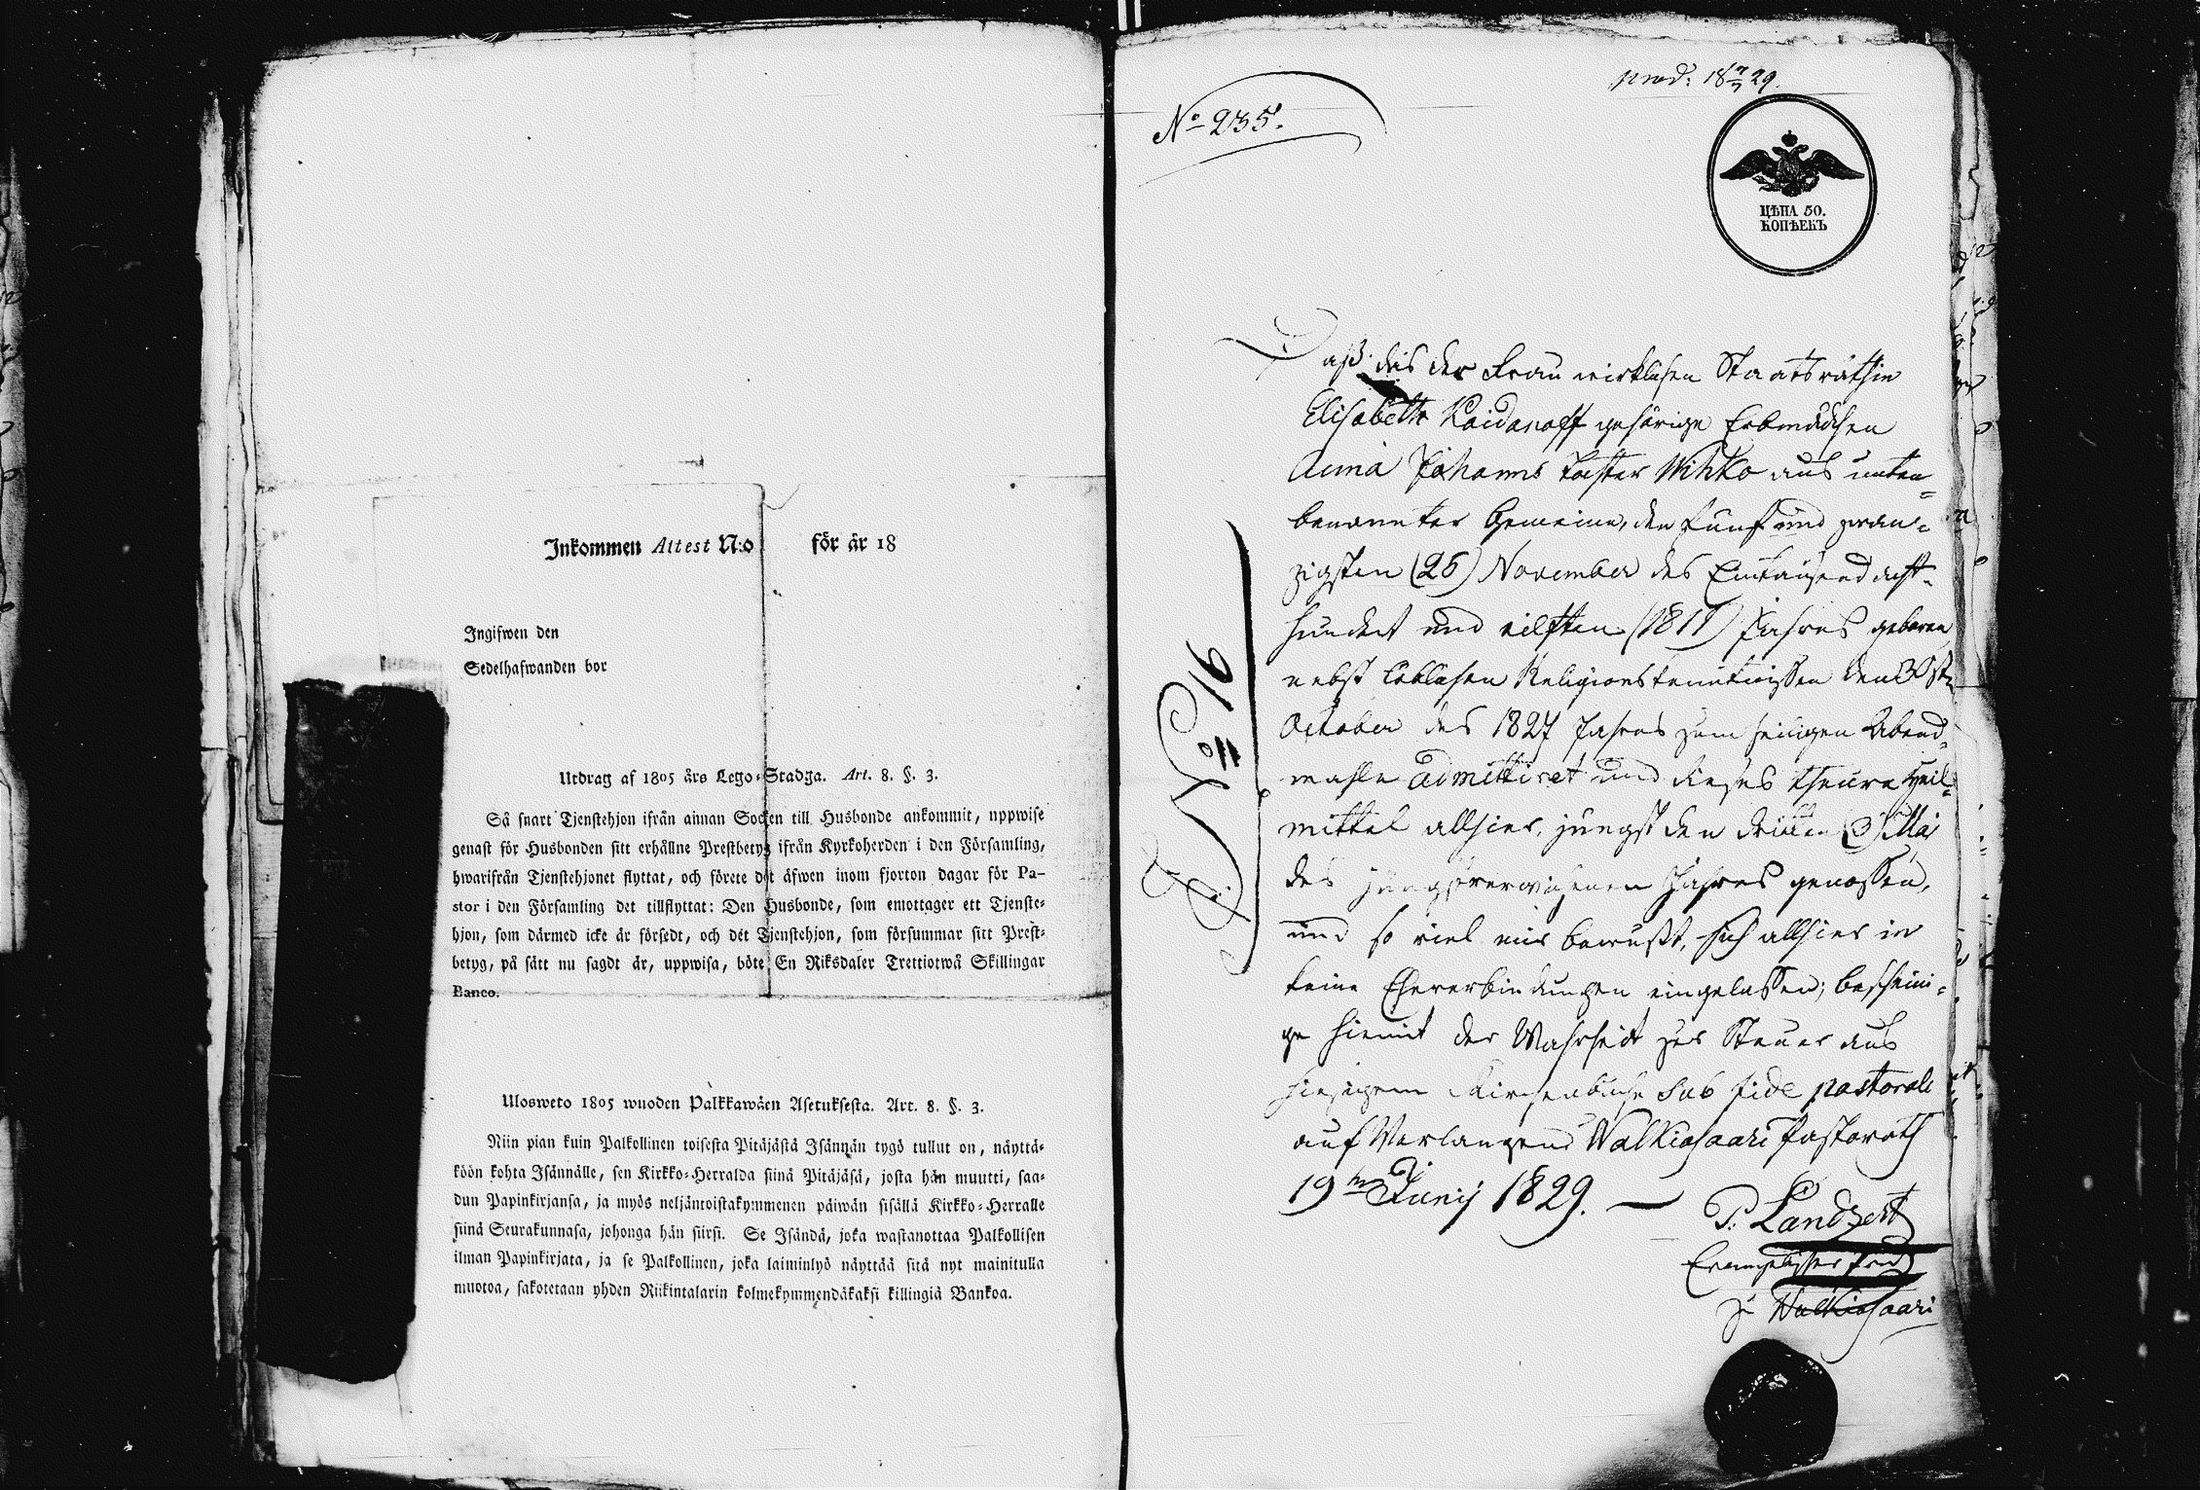 Inkommen Attest N:o för år 18
Ingifwen den
Sedelhafwanden bor
Utdrag af 1805 års Lego-Stadga. Art. 8. §. 3.
Så snart Tjenstehjon ifrån annan Socken till Husbonde ankommit, uppwise
genast för Husbonden sitt erhållne Prestbetyg ifrån Kyrkoherden i den Församling,
hwarifrån Tjenstehjonet flyttat, och förete det äfwen inom fjorton dagar för Pa-
stor i den Församling det tillflyttat: Den Husbonde, som emottager ett Tjenste-
hjon, som därmed icke är försedt, och det Tjenstehjon, som försummar sitt Prest-
betyg, på sätt nu sagdt är, uppwisa, böte En Riksdaler Trettiotwå Skillingar
Banco.
Ulosweto 1805 wuoden Palkkawäen Asetuksesta. Art. 8. §. 3.
Niin pian kuin Palkollinen toisesta Pitäjästä Isännän tygö tullut on, näyttä-
köön kohta Isännälle, sen Kirkko-Herralda siinä Pitäjäsä, josta hän muutti, saa-
dun Papinkirjansa, ja myös neljäntoistakymmenen päiwän sisällä Kirkko-Herralle
siinä Seurakunnasa, johonga hän siirsi. Se Isändä, joka wastanottaa Palkollisen
ilman Papinkirjata, ja se Palkollinen, joka laiminlyö näyttää sitä nyt mainitulla
muotoa, sakotetaan yhden Riikintalarin kolmekymmendäkaksi killingiä Bankoa.
prod: 18 7/7 29.
No 235.
ЦѢНА 50.
КОПѢЕКЪ
No 91
Daß das der Frau wirklichen Staatsräthin
Elisabeth Kaidanoff gehörige Erbmädchen
Anna Johanns Tochter Wihko aus unten-
benannter Gemeine, den fünf und zwan-
zigsten (25) November des Eintausend acht-
hundert und eilften (1811) Jahres geboren,
nebst löblichen Religionskenntnissen den 30sten
October des 1827 Jahres zum heiligen Abend-
mahle admittiret und dieses theure Heil-
mittel allhier, jüngst den dritten (3) Mai
des jüngstverwichenen Jahres genossen,
und so viel mir bewußt, sich allhier in
keine Eheverbindungen eingelassen; bescheini-
ge hiemit der Wahrheit zur Steuer aus
hiesigem Kirchenbuche sub fide pastorali
auf Verlangend Walkiasaari Pastorath
19ten Junij 1829.
P. Landzert
Evangelischer Pred
zu Walkiasaari